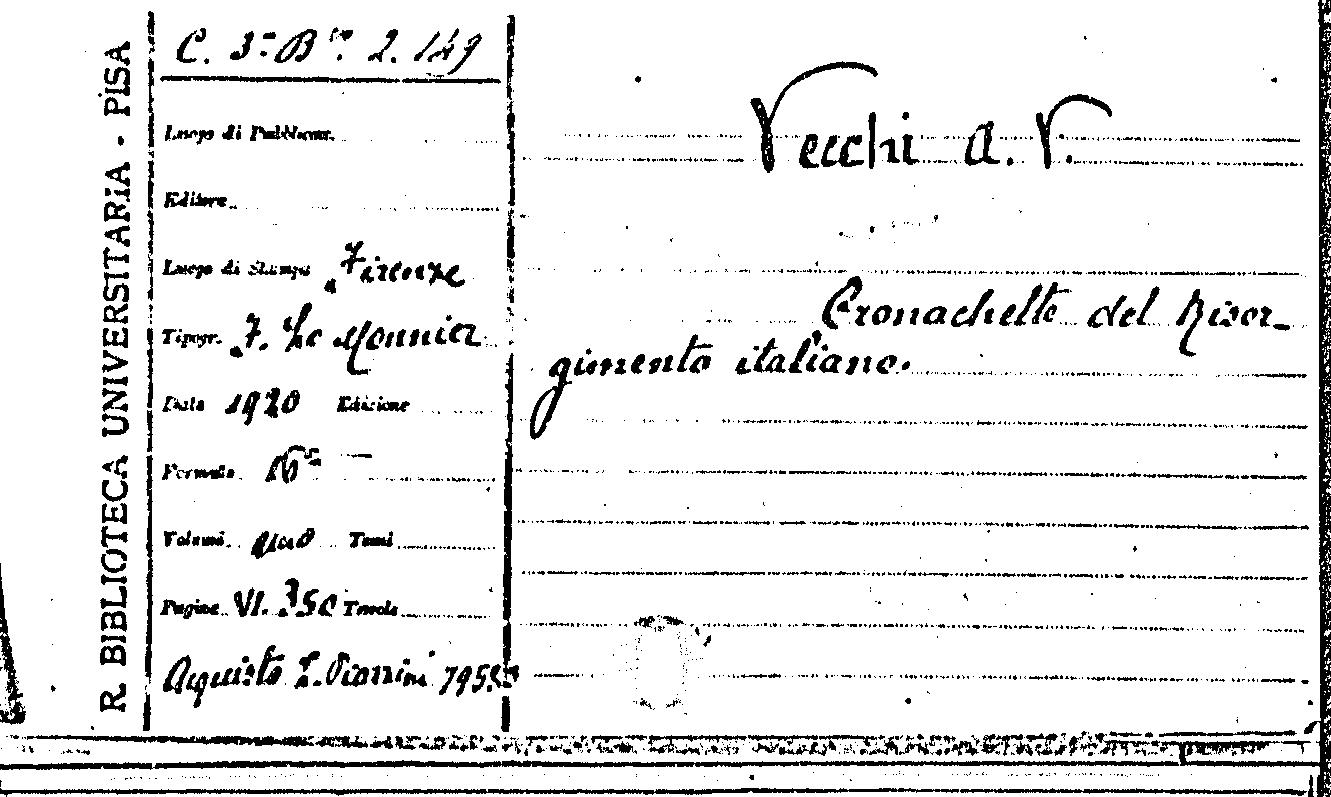 R. BIBLIOTECA UNIVERSITARIA - PISA
C. 3ª Bis. 2. 149
Luogo di Pubblicaz.
Editore
Luogo di Stampa Firenze
Tipogr. F. Le Monnier
Data 1920 Edizione
Formato 16º
Volumi uno Tomi
Pagine VI. 350 Tavole
Acquisto
Vecchi A. V.
Cronachette del Risor-
gimento italiano.